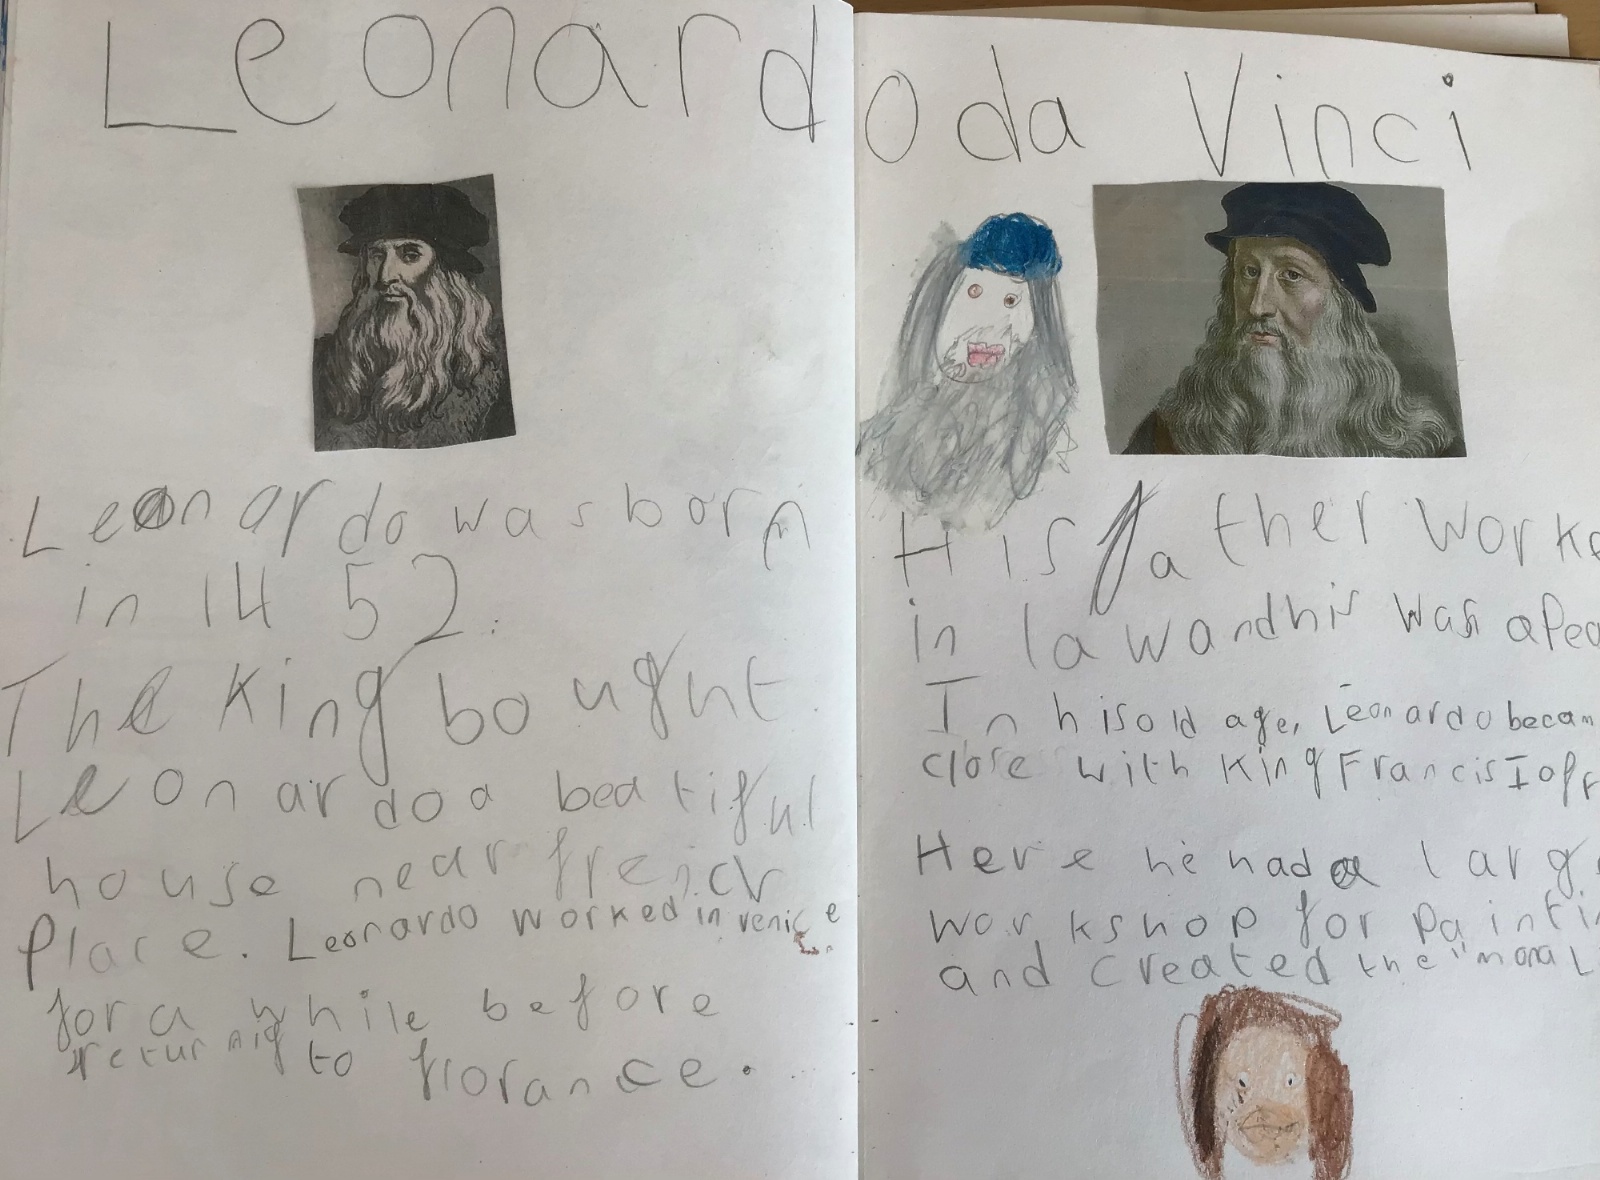 Leonardo da Vinci
Leonardo was born
in 1452.
The King bought
Leonardo a beatiful
house near french
Place. Leonardo worked in venice
for a while before
returnig to florance.
His father worke
in law and his was a Pea
In his old age, Leonardo becam
close with King Francis I of Fr
Here he had a larg
workshop for Painti
and created the "mona L